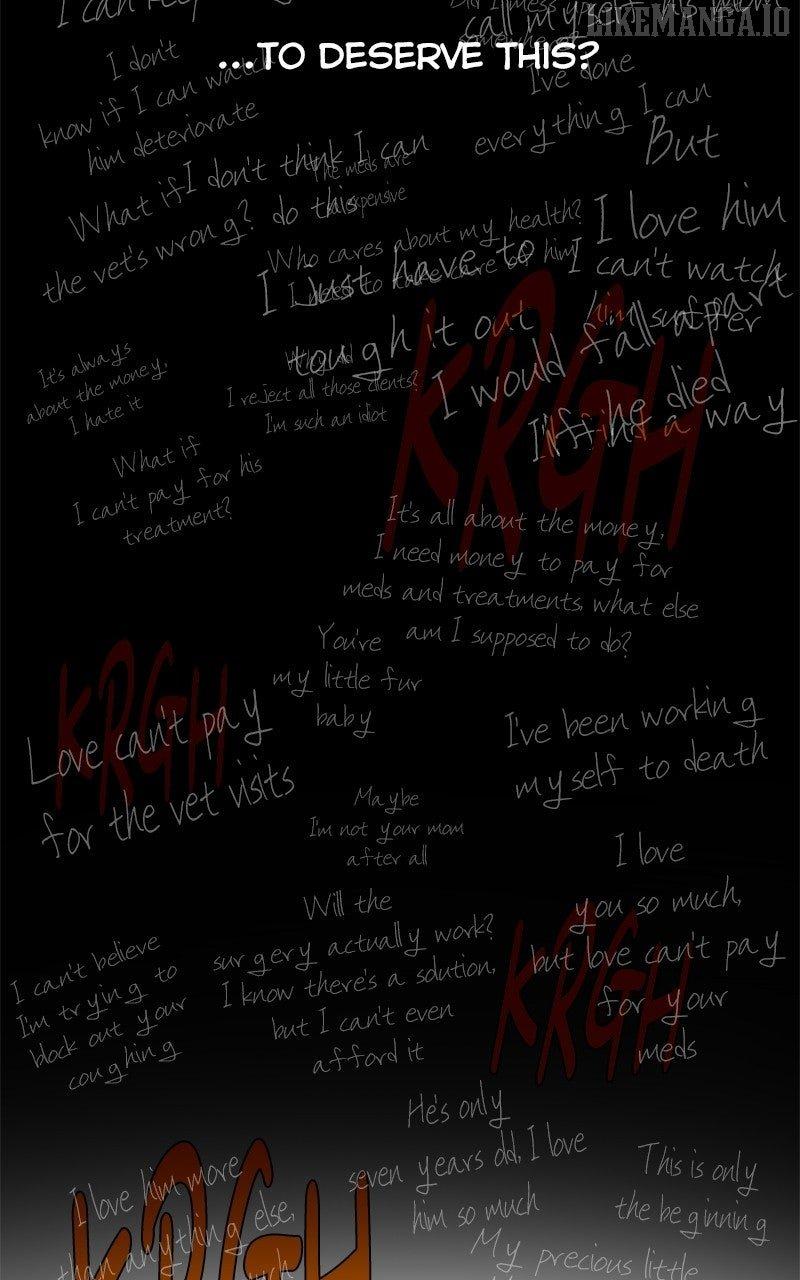 LIKEMANGA.IO
...TO DESERVE THIS?
call myself his mom
I don't
know if I can watch
him deteriorate
I've done
everything I can
But
What if
the vet's wrong?
I don't think I can
do this
The meds are
so expensive
Who cares about my health?
I need to take care of him
I just have to
tough it out
I love him
I can't watch
him suffer
I would fall apart
if he died
I'll find a way
KRGH
It's always
about the money,
I hate it
Why did
I reject all those clients?
I'm such an idiot
What if
I can't pay for his
treatment?
It's all about the money,
I need money to pay for
meds and treatments, what else
am I supposed to do?
You're
my little fur
baby
KRGH
Love can't pay
for the vet visits
I've been working
myself to death
Maybe
I'm not your mom
after all
I love
you so much,
but love can't pay
for your
meds
KRGH
Will the
surgery actually work?
I know there's a solution,
but I can't even
afford it
I can't believe
I'm trying to
block out your
coughing
He's only
seven years old, I love
him so much
This is only
the beginning
I love him more
than anything else,
KRGH
My precious little